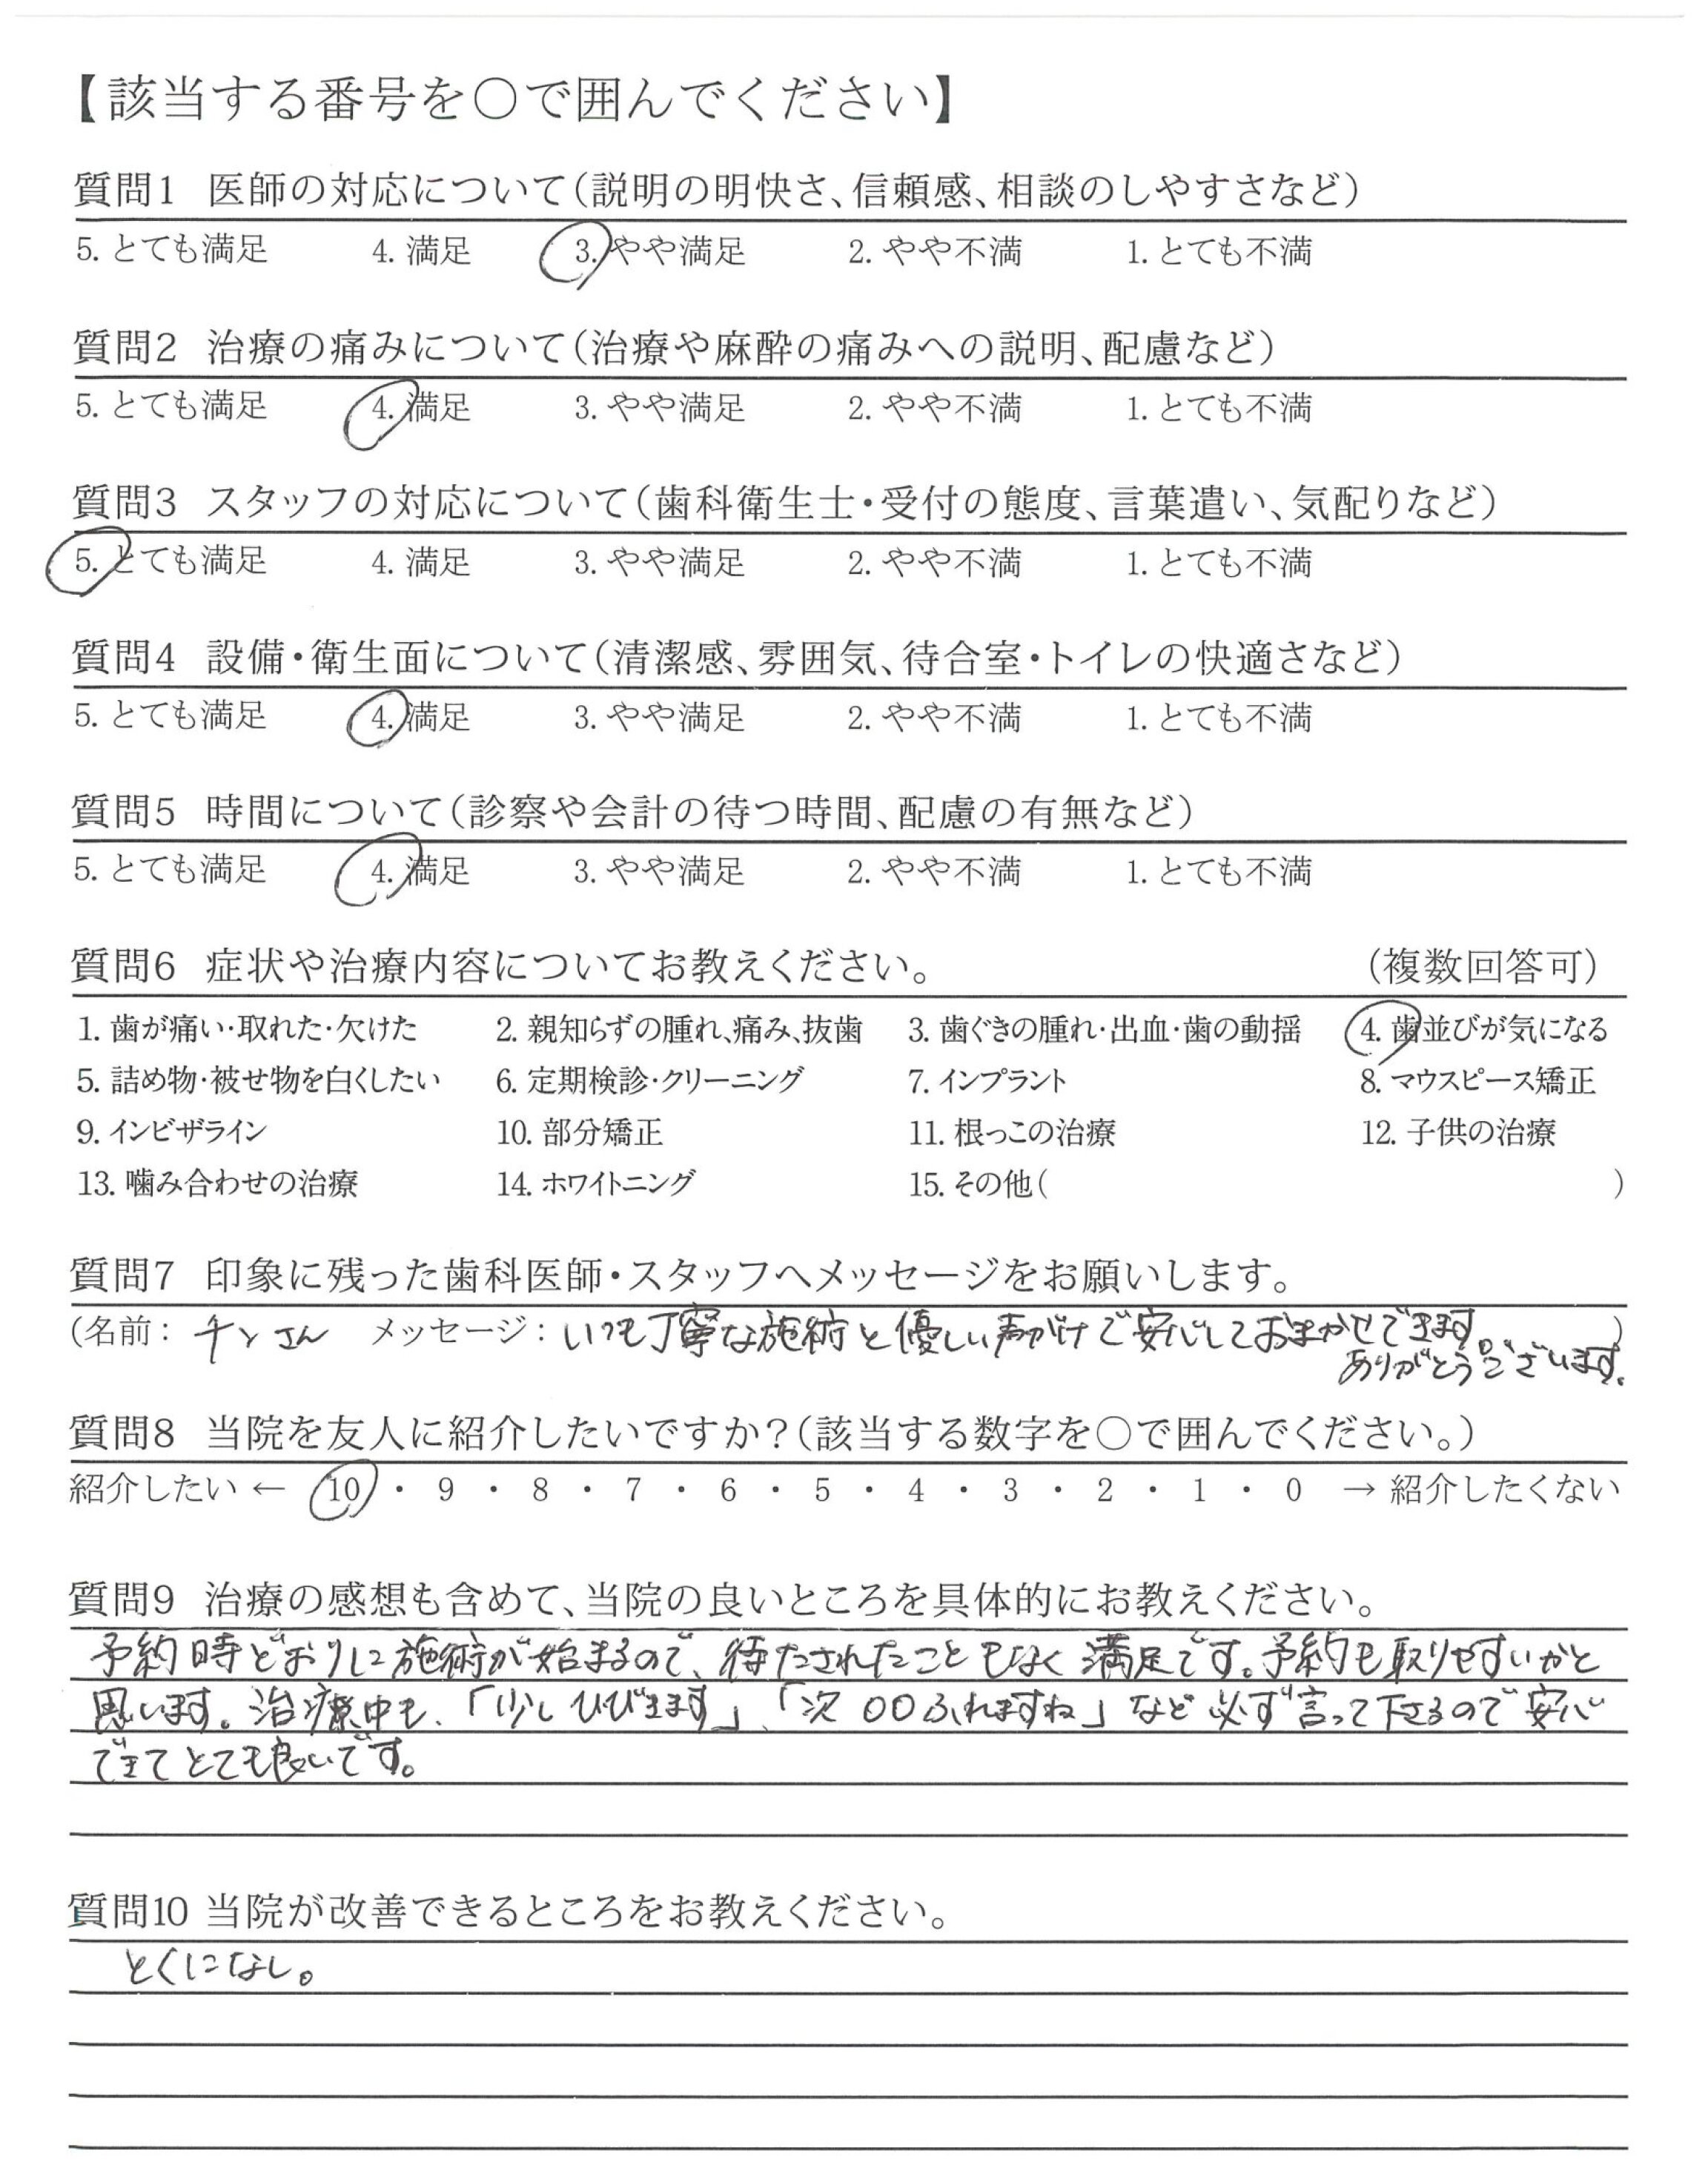 【該当する番号を○で囲んでください】
質問1 医師の対応について(説明の明快さ、信頼感、相談のしやすさなど)
5. とても満足 4. 満足 3. やや満足 2. やや不満 1. とても不満
質問2 治療の痛みについて(治療や麻酔の痛みへの説明、配慮など)
5. とても満足 4. 満足 3. やや満足 2. やや不満 1. とても不満
質問3 スタッフの対応について(歯科衛生士・受付の態度、言葉遣い、気配りなど)
5. とても満足 4. 満足 3. やや満足 2. やや不満 1. とても不満
質問4 設備・衛生面について(清潔感、雰囲気、待合室・トイレの快適さなど)
5. とても満足 4. 満足 3. やや満足 2. やや不満 1. とても不満
質問5 時間について(診察や会計の待つ時間、配慮の有無など)
5. とても満足 4. 満足 3. やや満足 2. やや不満 1. とても不満
質問6 症状や治療内容についてお教えください。 (複数回答可)
1. 歯が痛い・取れた・欠けた 2. 親知らずの腫れ、痛み、抜歯 3. 歯ぐきの腫れ・出血・歯の動揺 4. 歯並びが気になる
5. 詰め物・被せ物を白くしたい 6. 定期検診・クリーニング 7. インプラント 8. マウスピース矯正
9. インビザライン 10. 部分矯正 11. 根っこの治療 12. 子供の治療
13. 噛み合わせの治療 14. ホワイトニング 15. その他( )
質問7 印象に残った歯科医師・スタッフへメッセージをお願いします。
(名前: さん メッセージ: いつも丁寧な施術と優しい声がけで安心しておまかせできます。 )
ありがとうございます。
質問8 当院を友人に紹介したいですか?(該当する数字を○で囲んでください。)
紹介したい ← 10 ・ 9 ・ 8 ・ 7 ・ 6 ・ 5 ・ 4 ・ 3 ・ 2 ・ 1 ・ 0 → 紹介したくない
質問9 治療の感想も含めて、当院の良いところを具体的にお教えください。
予約時どおりに施術が始まるので、待たされたこともなく満足です。予約も取りやすいかと
思います。治療中も、「少しひびきます」、「次〇〇ふれますね」など必ず言って下さるので安心
できてとても良いです。
質問10 当院が改善できるところをお教えください。
とくになし。